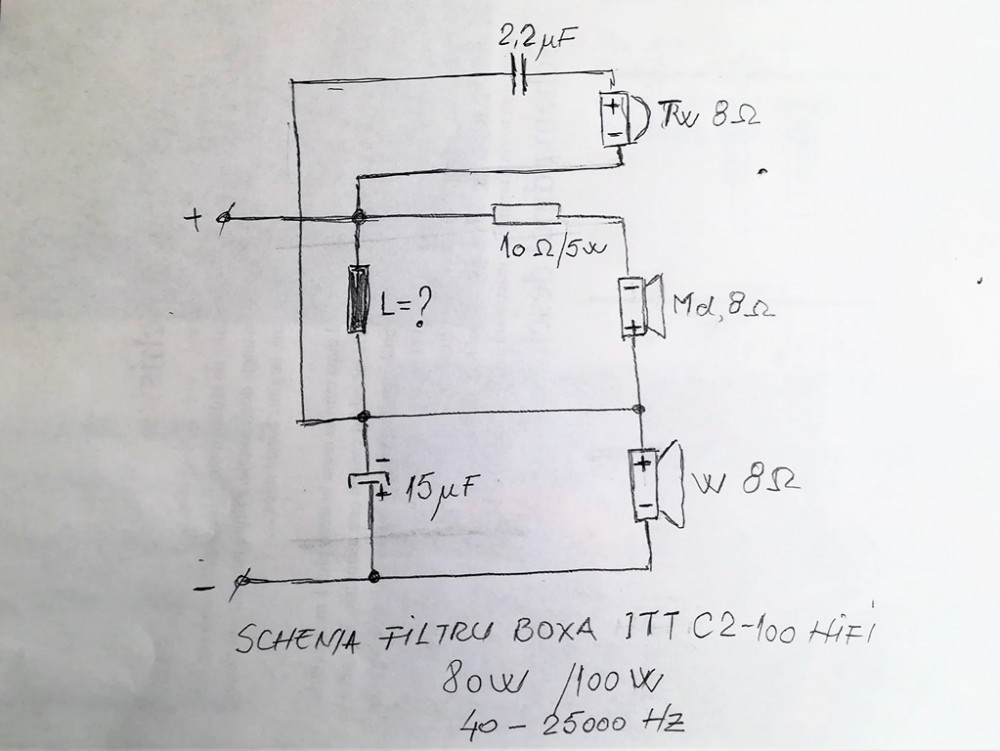 2,2 µF
+
-
Tw 8Ω
+
10Ω/5W
L=?
-
+
Md, 8Ω
-
+
15µF
+
-
W 8Ω
-
SCHEMA FILTRU BOXA ITT C2-100 HiFi
80W /100W
40 - 25000 HZ